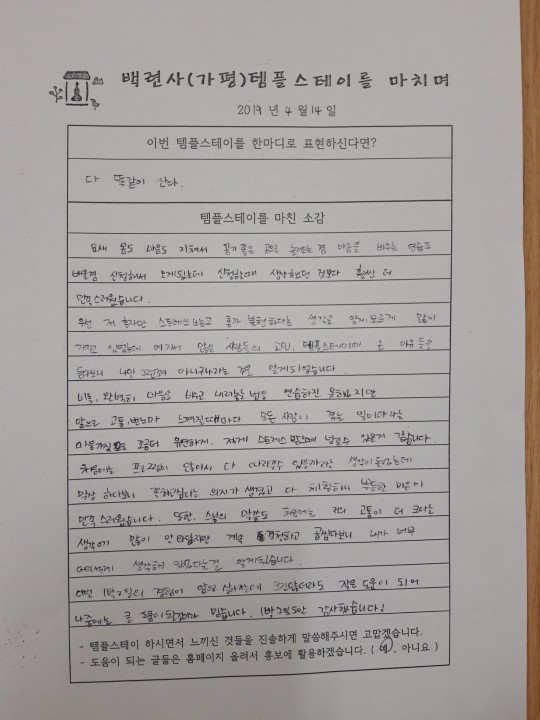 백련사(가평)템플스테이를 마치며
2019 년 4 월 14 일
이번 템플스테이를 한마디로 표현하신다면?
다 똑같이 산다.
템플스테이를 마친 소감
요새 몸도 마음도 지쳐서 공기 좋은 곳도 마음을 비우는 연습도
배울겸 신청해서 오게되었는데 신청했을때 생각했던 것보다 훨씬 더
만족스러웠습니다.
우선 저 혼자만 스트레스 받고 불행하다는 생각을 많이
가진 있었는데 여기서 많은 사람들의 고민, 템플스테이에 온 이유 등을
들어보니 나만 그런게 아니구나라는 것을 알게되었습니다.
비록, 완벽히 마음을 비우고 내려놓는 연습하진 못하지만
앞으로 고통, 번뇌가 느껴질때마다 모든 사람이 겪는 일이다라는
마음가짐으로 조금더 유연하게, 스트레스 있을지 같습니다.
처음에는 프로그램이 많아서 다 따라갈수 있을까라는 생각이 들었는데
막상 하다보니 의지가 생겼고 다 뿌듯한 마음이
만족스러웠습니다. 또한, 스님의 말씀도 처음에는 나의 고통이 더 크다는
생각이 많이 안와닿았지만 계속 경청하고 곱씹다보니 내가 너무
생각하고 있었다는걸 알게되었습니다.
이번 1박2일의 경험이 앞으로 살아가는데 크진않더라도 작은 도움이 되어
나중에는 큰 도움이 될거라 믿습니다. 1박2일동안 감사했습니다!
- 템플스테이 하시면서 느끼신 것들을 진솔하게 말씀해주시면 고맙겠습니다.
- 도움이 되는 글들은 홈페이지 올려서 홍보에 활용하겠습니다. ( 예, 아니요 )